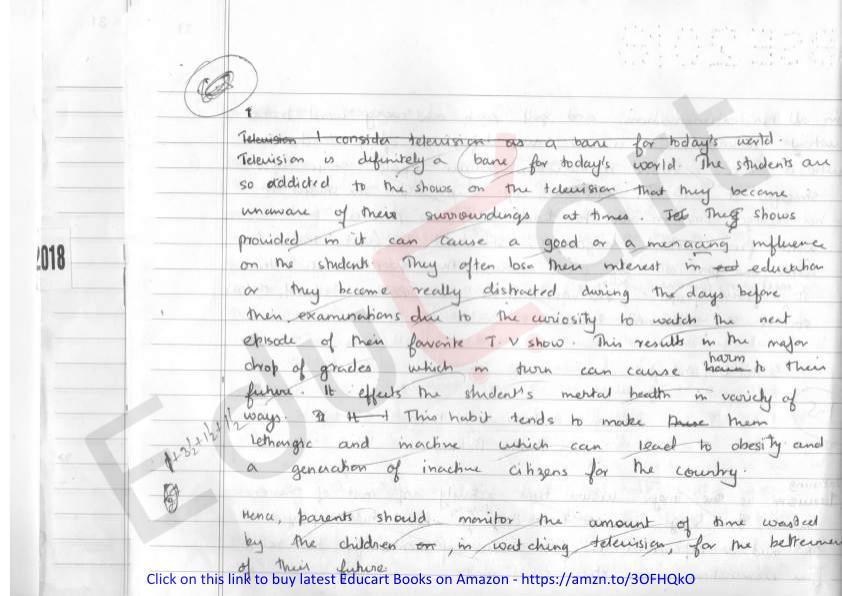 Television I consider television as a bane for today's world.
Television is definitely a bane for today's world. The students are
so addicted to the shows on the television that they become
unaware of their surroundings at times. The shows
provided in it can cause a good or a menacing influence
on the students. They often lose their interest in education
or they become really distracted during the days before
their examinations due to the curiosity to watch the next
episode of their favorite T.V show. This results in the major
drop of grades which in turn can cause harm to their
future. It effects the student's mental health in variety of
ways. This habit tends to make them
lethargic and inactive which can lead to obesity and
a generation of inactive citizens for the country.
1+3½+1½+1½
Hence, parents should monitor the amount of time wasted
by the children in watching television, for the betterment
of their future.
2018
EduCart
Click on this link to buy latest Educart Books on Amazon - https://amzn.to/3OFHQkO